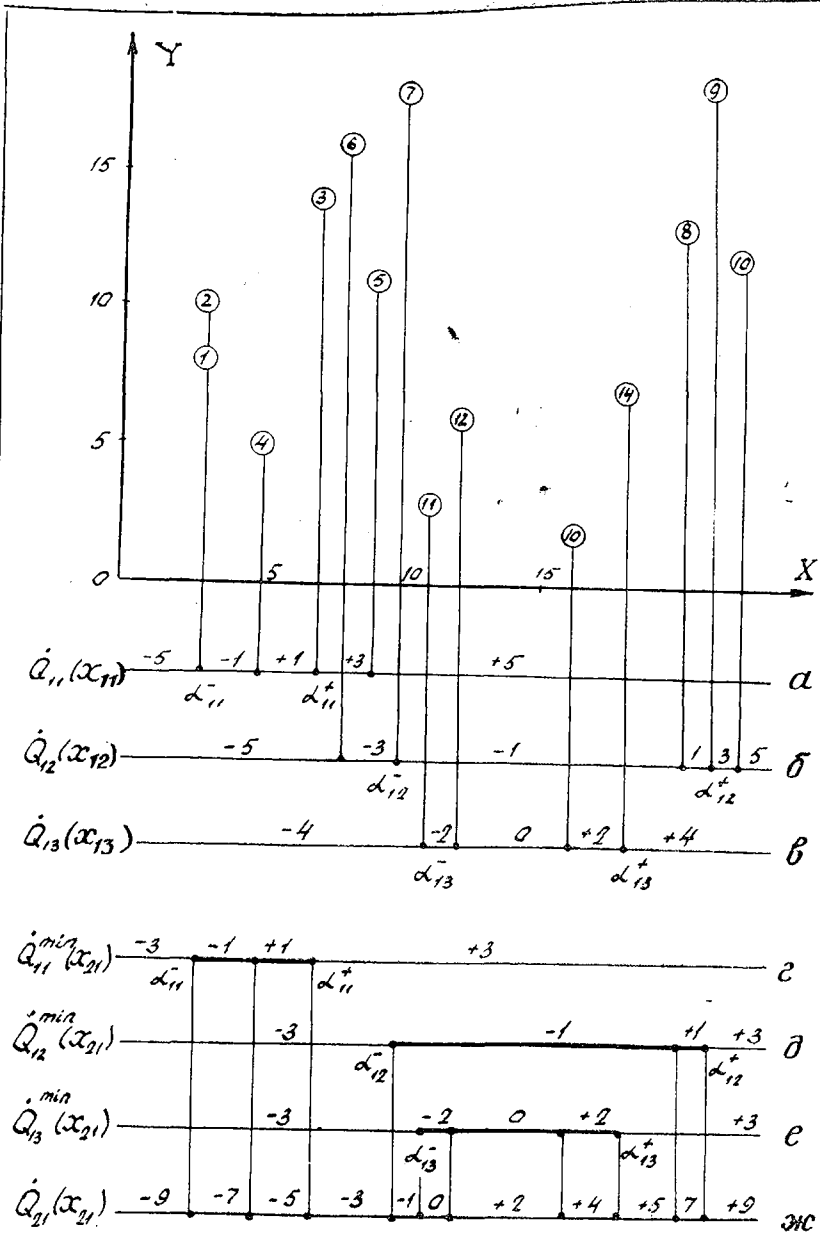 Y
7
9
6
15
3
8
5
10
10
2
1
14
12
5
4
11
10
0
5
10
15
X
Q̇₁₁(x₁₁) -5 -1 +1 +3 +5 а
α₁₁⁻ α₁₁⁺
Q̇₁₂(x₁₂) -5 -3 -1 1 3 5 б
α₁₂⁻ α₁₂⁺
Q̇₁₃(x₁₃) -4 -2 0 +2 +4 в
α₁₃⁻ α₁₃⁺
Q̇₁₁ᵐⁱⁿ(x₂₁) -3 -1 +1 +3 г
α₁₁⁻ α₁₁⁺
Q̇₁₂ᵐⁱⁿ(x₂₁) -3 -1 +1 +3 д
α₁₂⁻ α₁₂⁺
Q̇₁₃ᵐⁱⁿ(x₂₁) -3 -2 0 +2 +3 е
α₁₃⁻ α₁₃⁺
Q̇₂₁(x₂₁) -9 -7 -5 -3 -1 0 +2 +4 +5 7 +9 ж